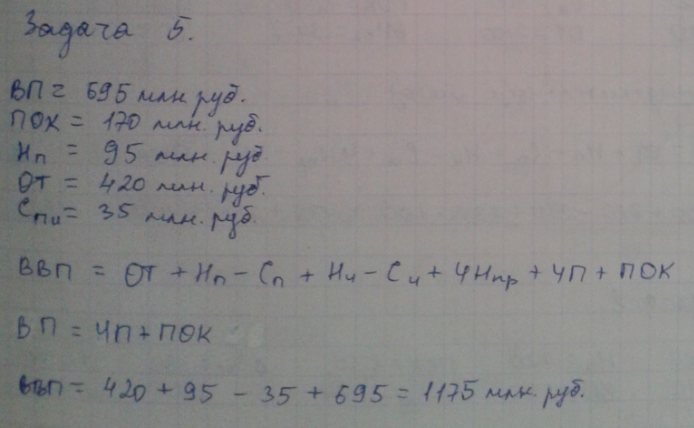 Задача 5.
ВП = 695 млн. руб.
ПОК = 170 млн. руб.
Нп = 95 млн. руб
ОТ = 420 млн. руб.
Спи = 35 млн. руб.
ВВП = ОТ + Нп - Сп + Ни - Си + ЧНпр + ЧП + ПОК
ВП = ЧП + ПОК
ВВП = 420 + 95 - 35 + 695 = 1175 млн. руб.